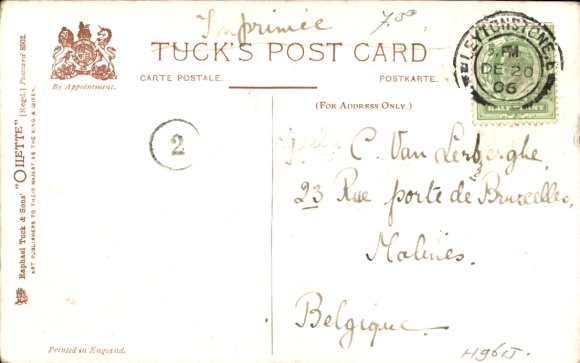 Imprimée 7.30
TUCK'S POST CARD
CARTE POSTALE. POSTKARTE.
By Appointment.
(FOR ADDRESS ONLY.)
LEYTONSTONE.E
PM
DE 20
06
HALF PENNY
2
C. Van Lerberghe
23 Rue porte de Bruxelles,
Malines.
Belgique.
H96IJ
Raphael Tuck & Sons' "OILETTE" [Regd.] Postcard 8502.
ART PUBLISHERS TO THEIR MAJESTIES THE KING & QUEEN.
Printed in England.